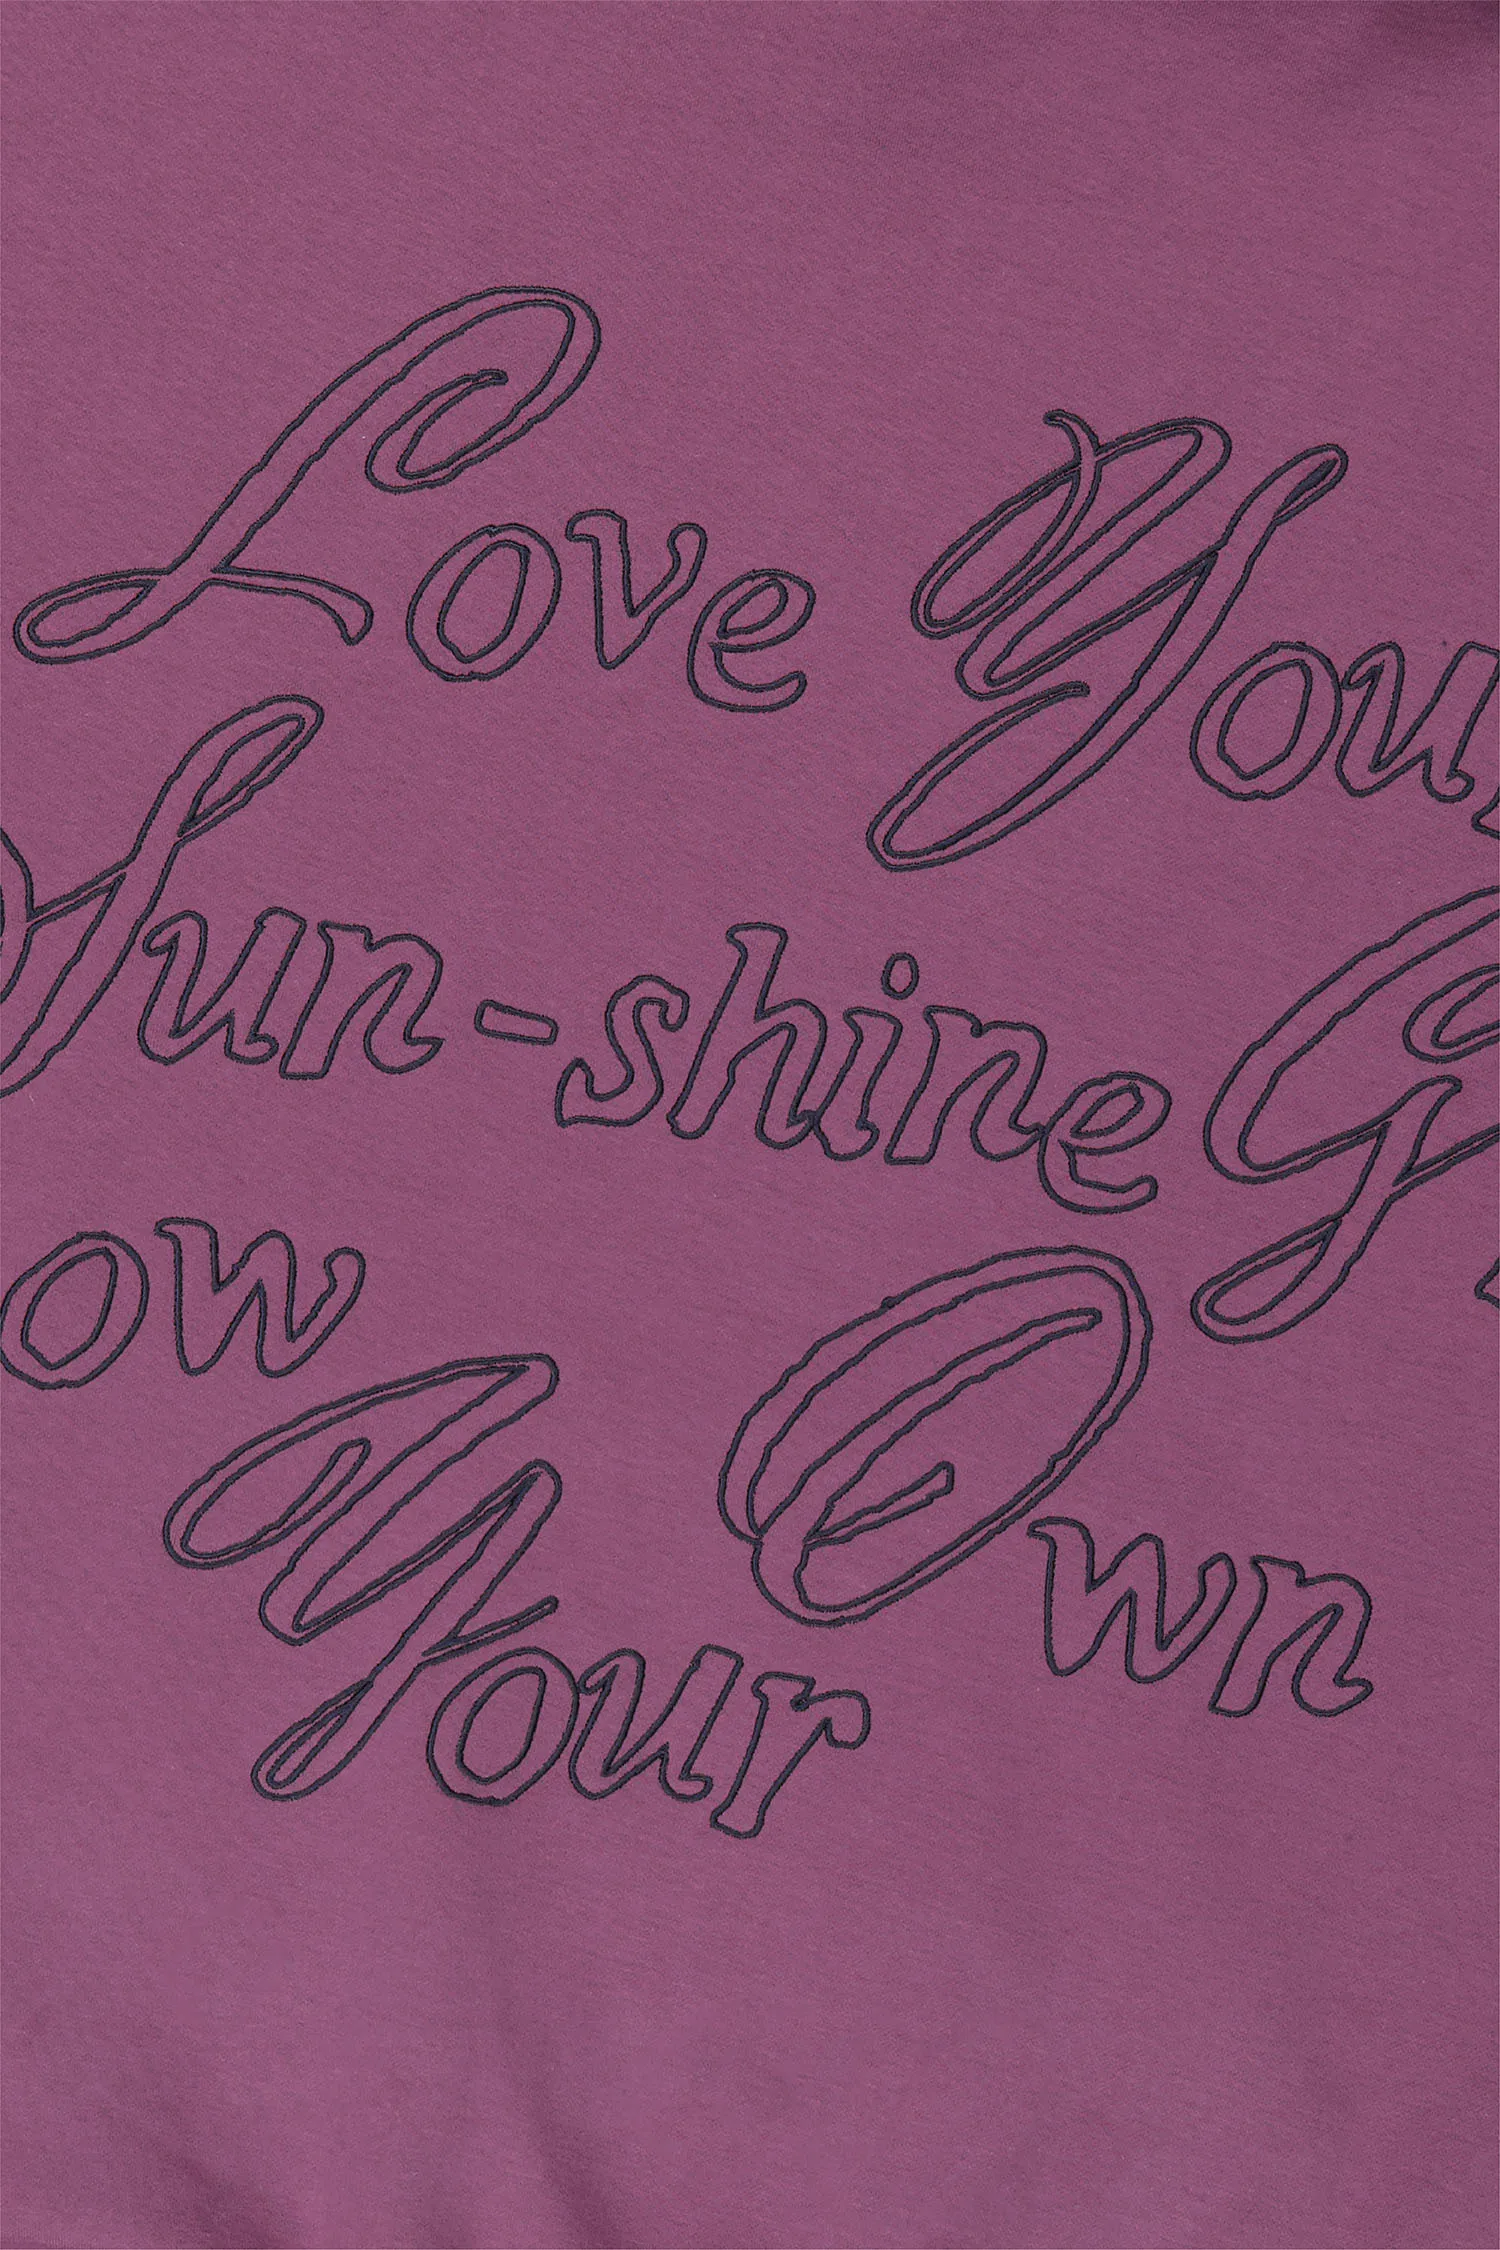 Love Your
Sun-shine Gr
ow
Your Own